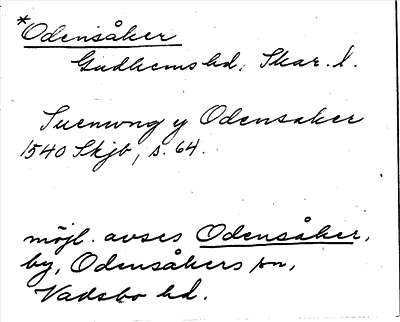 *Odensåker
Gudhems hd, Skar. l.
Suenung y Odensaker
1540 Skjb, s. 64.
möjl. avses Odensåker,
by, Odensåkers sn,
Vadsbo hd.